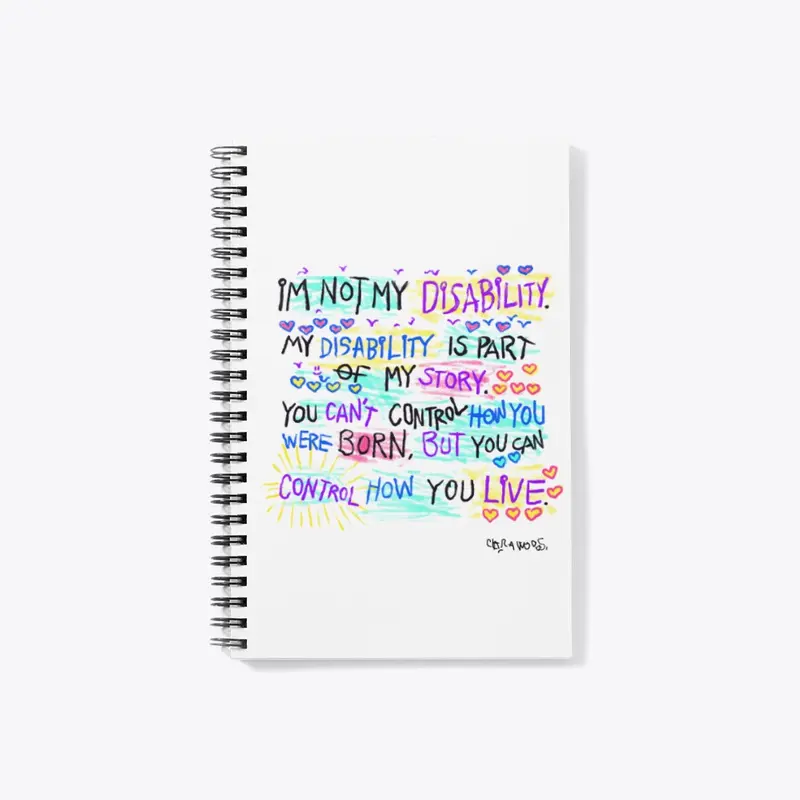 iM NOT MY DiSABiLiTY.
MY DiSABiLiTY iS PART
OF MY STORY.
YOU CAN'T CONTROL HOW YOU
WERE BORN, BUT YOU CAN
CONTROL HOW YOU LiVE.